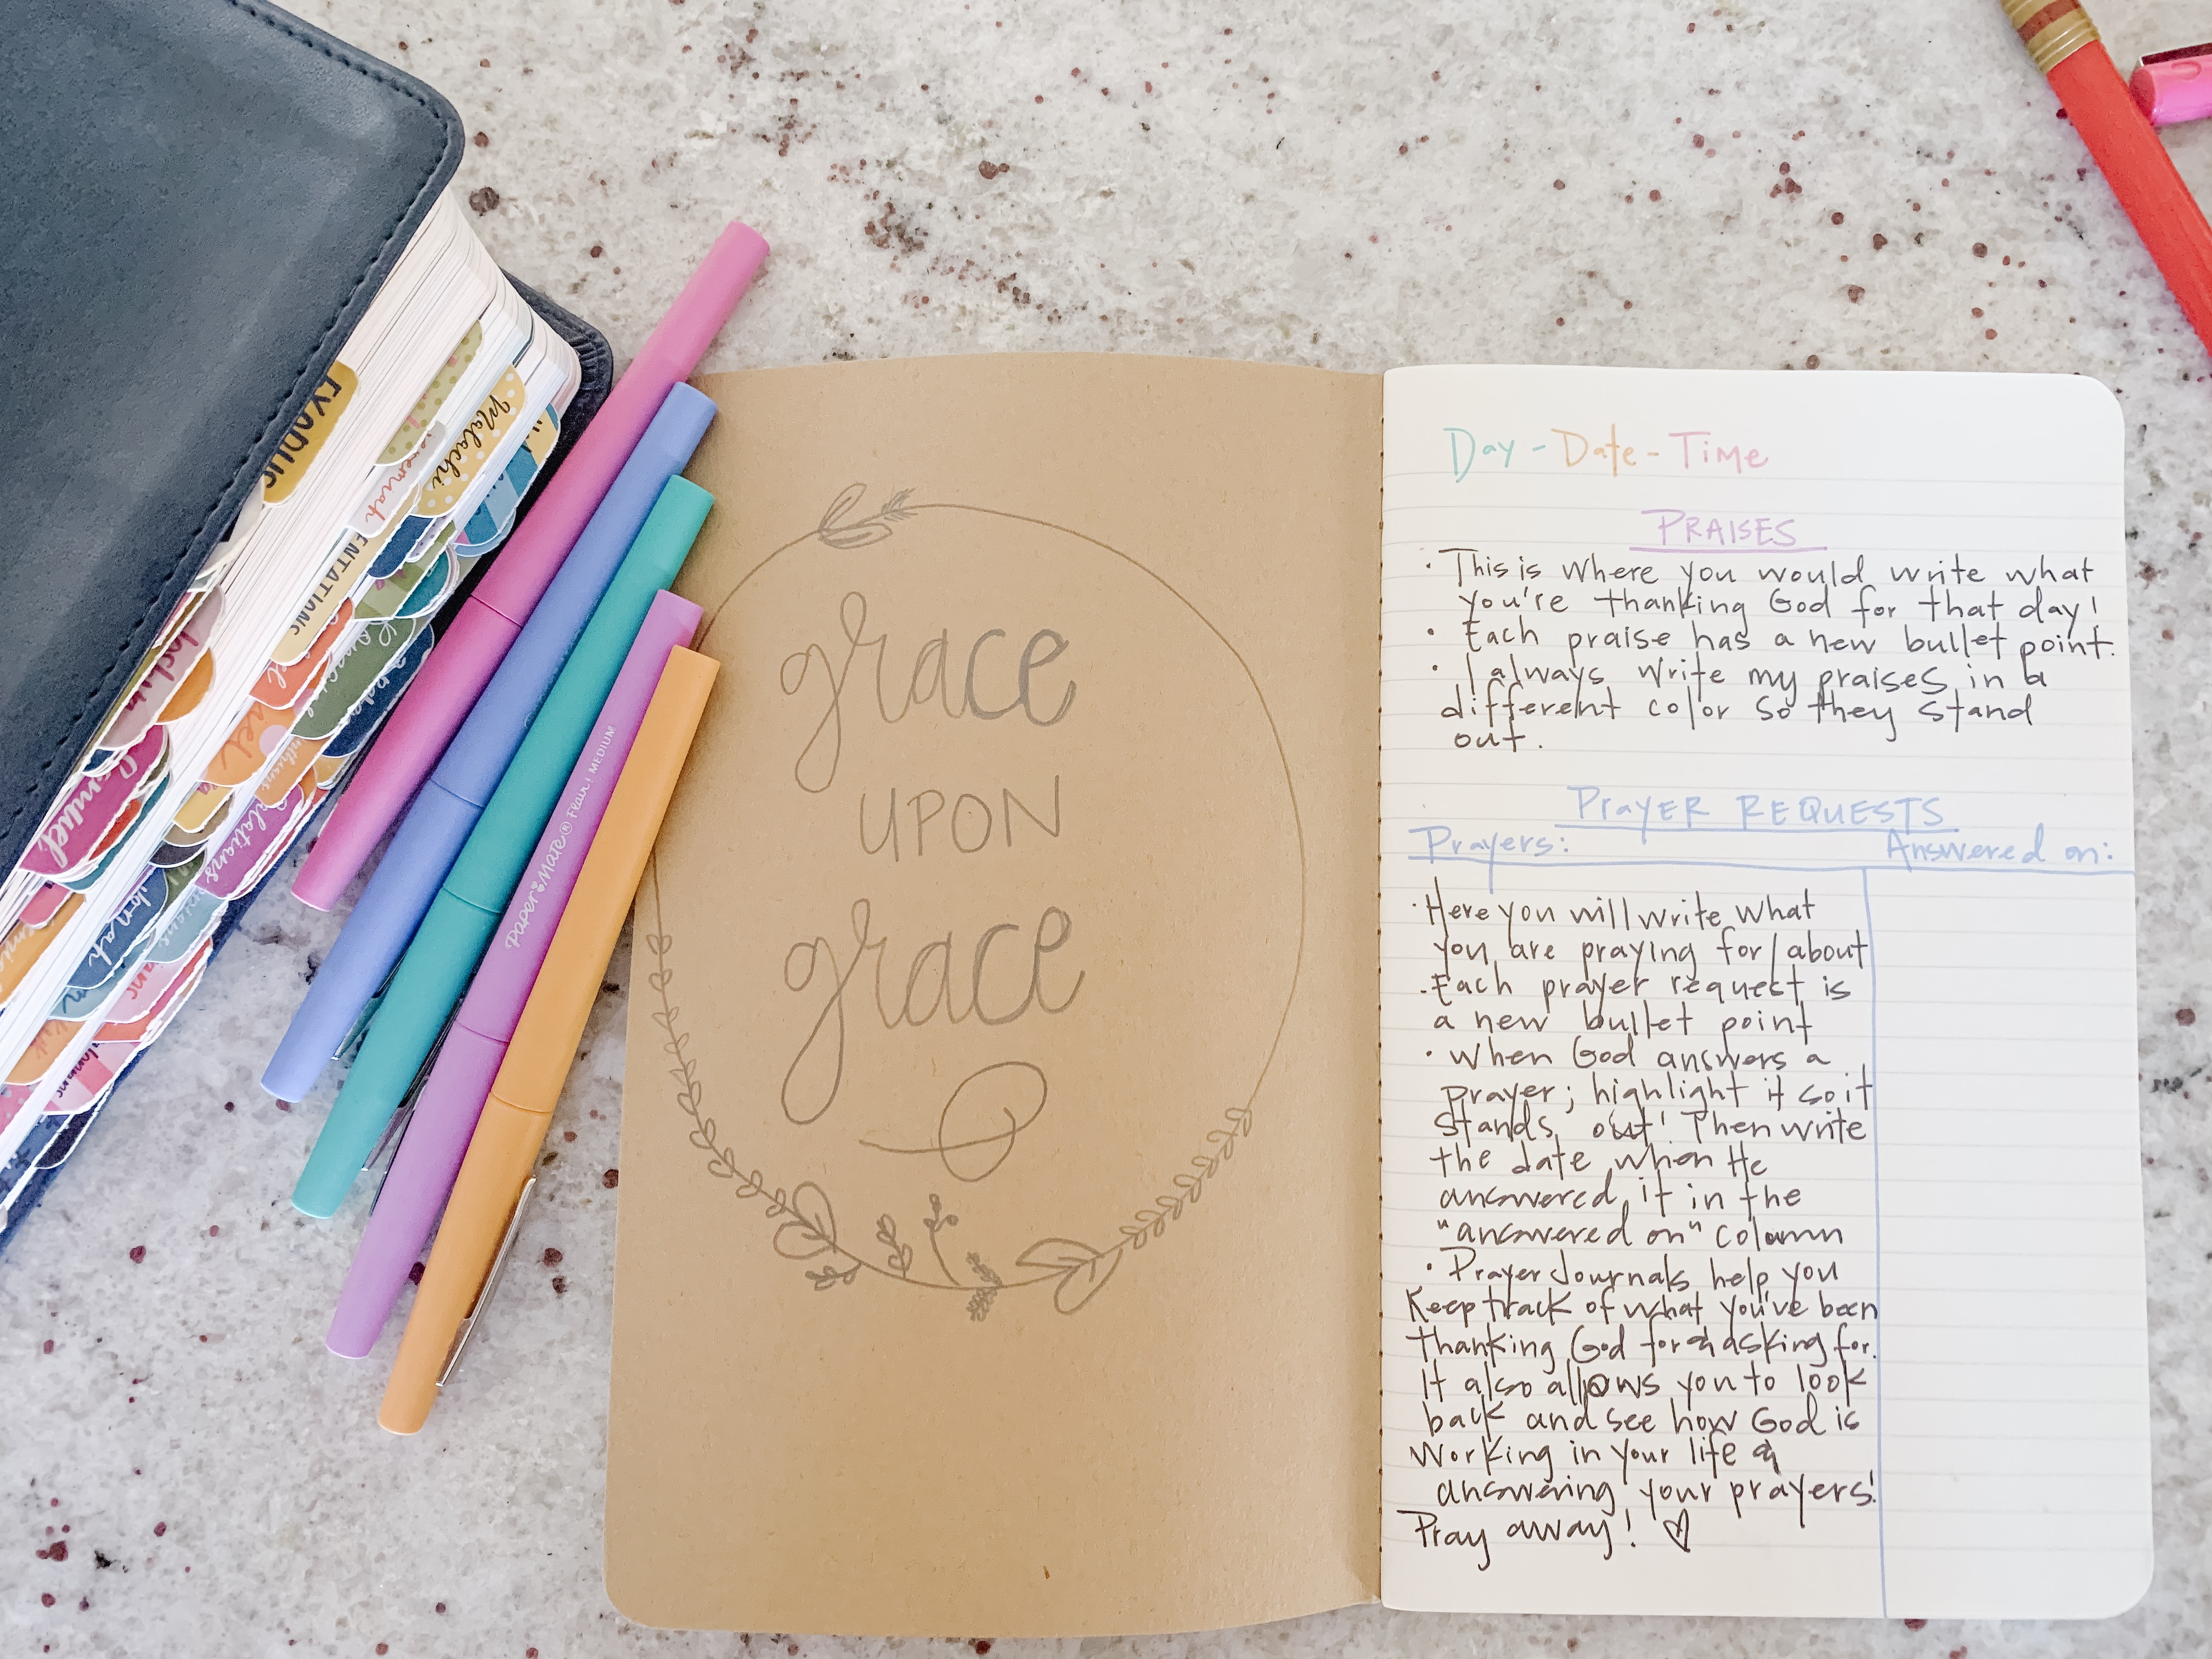 EXODUS
Malachi
Jeremiah
Samuel
Jonah
Paper Mate® Flair! MEDIUM
grace
UPON
grace
Day - Date - Time
PRAISES
· This is where you would write what
you're thanking God for that day!
· Each praise has a new bullet point.
· I always write my praises in a
different color so they stand
out.
PRAYER REQUESTS
Prayers: Answered on:
· Here you will write what
you are praying for/about
· Each prayer request is
a new bullet point
· When God answers a
prayer; highlight it so it
stands out! Then write
the date when He
answered it in the
"answered on" column
· Prayer Journals help you
Keep track of what you've been
thanking God for & asking for.
It also allows you to look
back and see how God is
working in your life &
answering your prayers!
Pray away! ♡